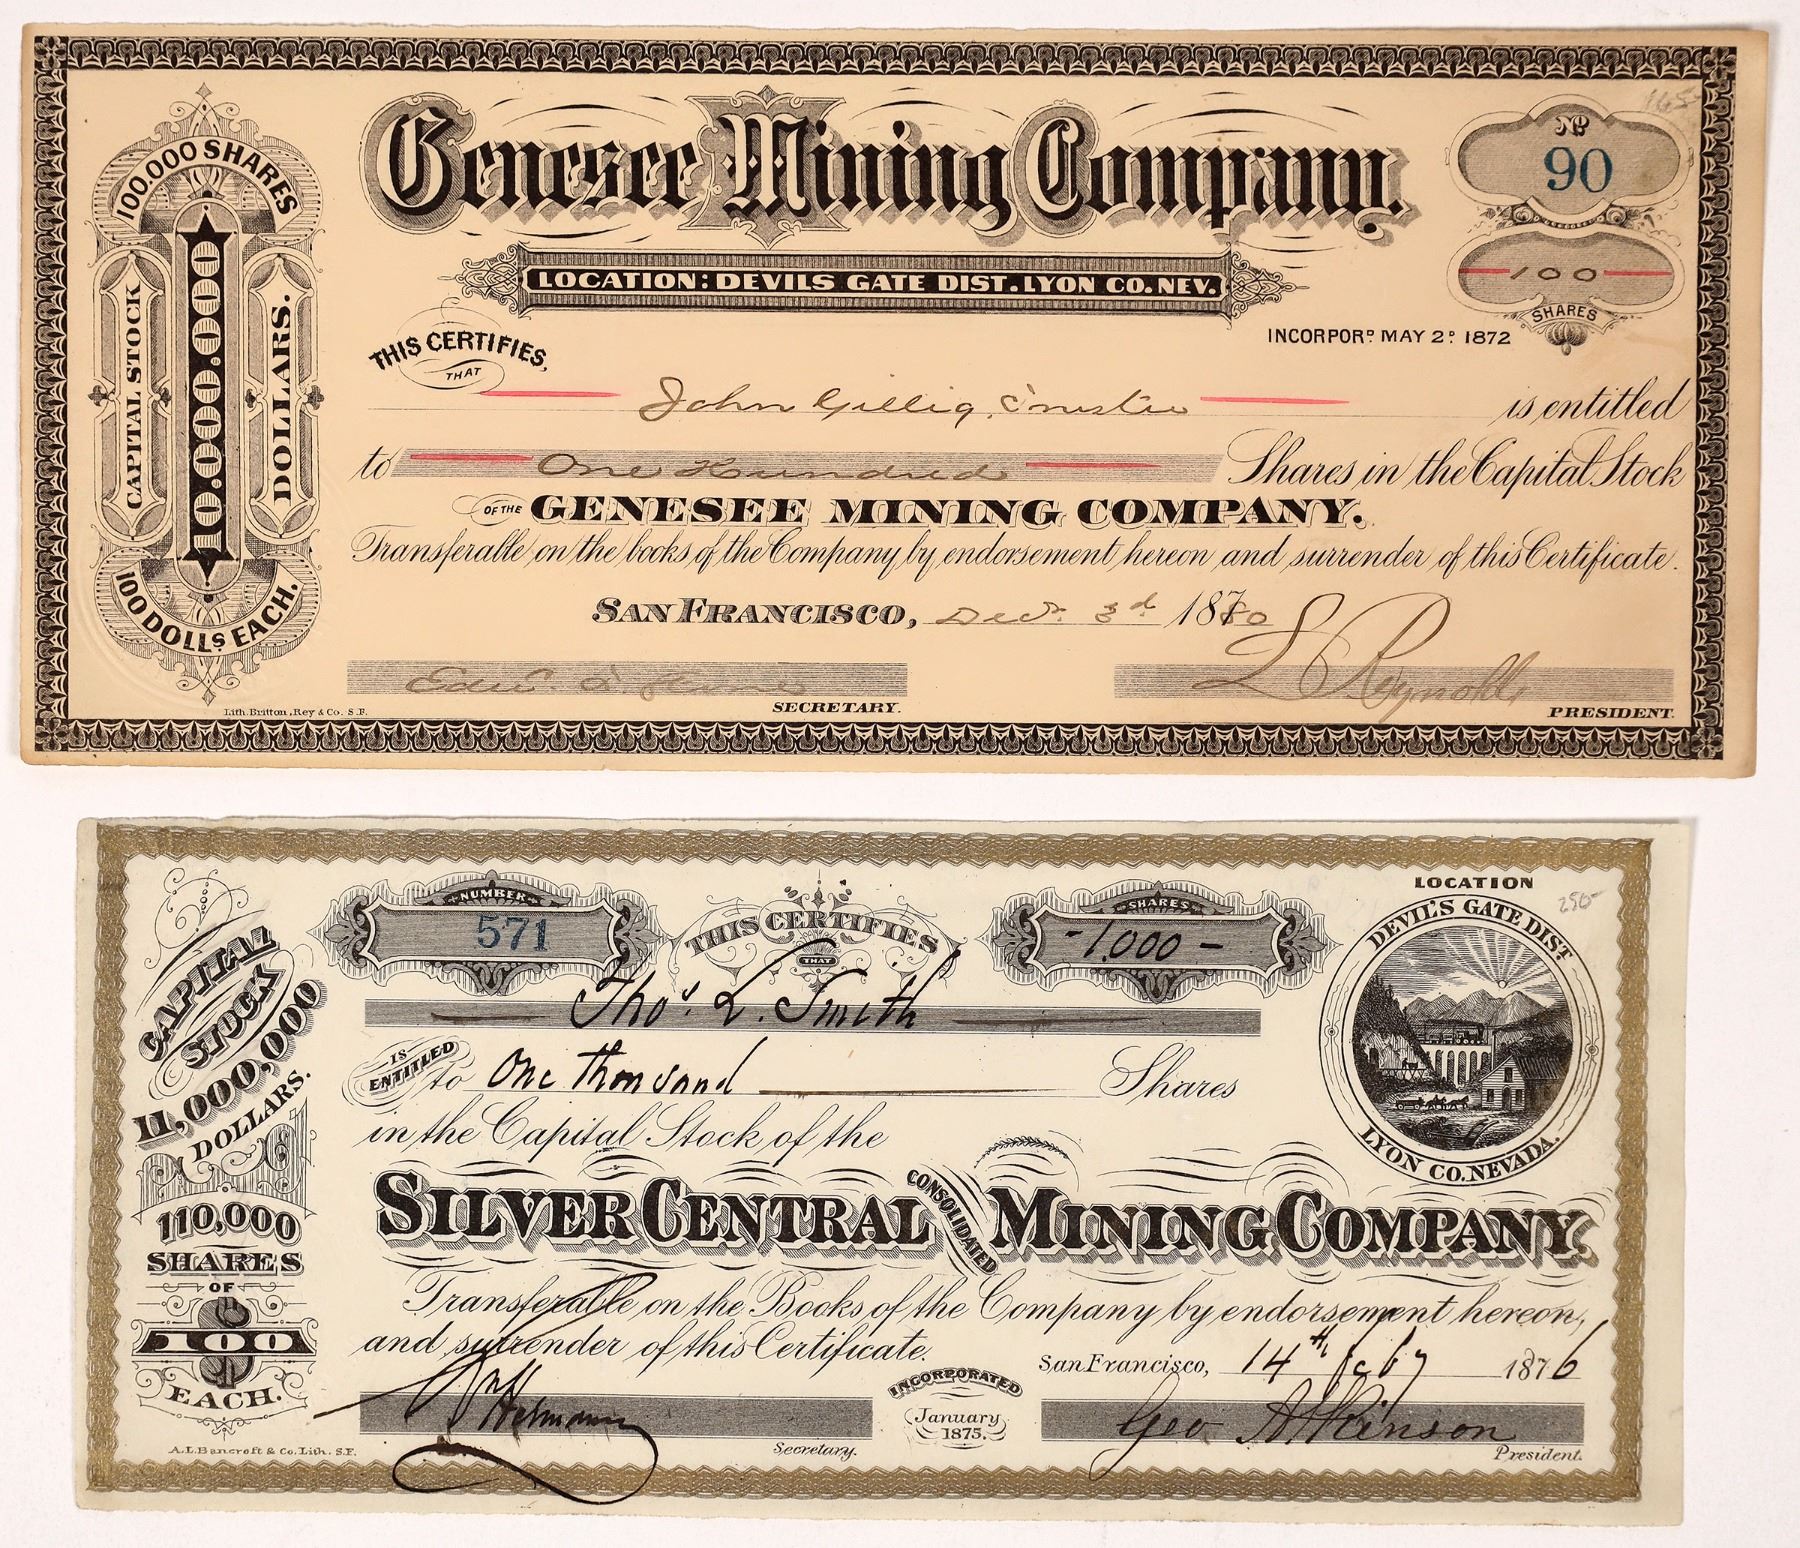 Genesee Mining Company.
LOCATION: DEVILS GATE DIST. LYON CO. NEV.
100.000 SHARES
CAPITAL STOCK
10.000.000
DOLLARS.
100 DOLLS EACH.
No
90
100
SHARES
INCORPORD MAY 2D 1872
THIS CERTIFIES,
THAT
John Gillig, Trustee is entitled
to One Hundred Shares in the Capital Stock
OF THE GENESEE MINING COMPANY.
Transferable on the books of the Company by endorsement hereon and surrender of this Certificate.
SAN FRANCISCO, Decr. 3d 1880
L Reynolds
SECRETARY.
PRESIDENT.
Lith. Britton, Rey & Co. S.F.
NUMBER
571
THIS CERTIFIES
THAT
SHARES
-1,000-
LOCATION
250-
DEVIL'S GATE DIST.
LYON CO. NEVADA.
CAPITAL
STOCK
11,000,000
DOLLARS.
110,000
SHARES
OF
$
100
EACH.
Thos. L. Smith
IS
ENTITLED
to One Thousand Shares
in the Capital Stock of the
SILVER CENTRAL CONSOLIDATED MINING COMPANY.
Transferable on the Books of the Company by endorsement hereon,
and surrender of this Certificate.
San Francisco, 14th 1876
INCORPORATED
January
1875.
Geo Atkinson
Secretary.
President.
A.L. Bancroft & Co. Lith. S.F.